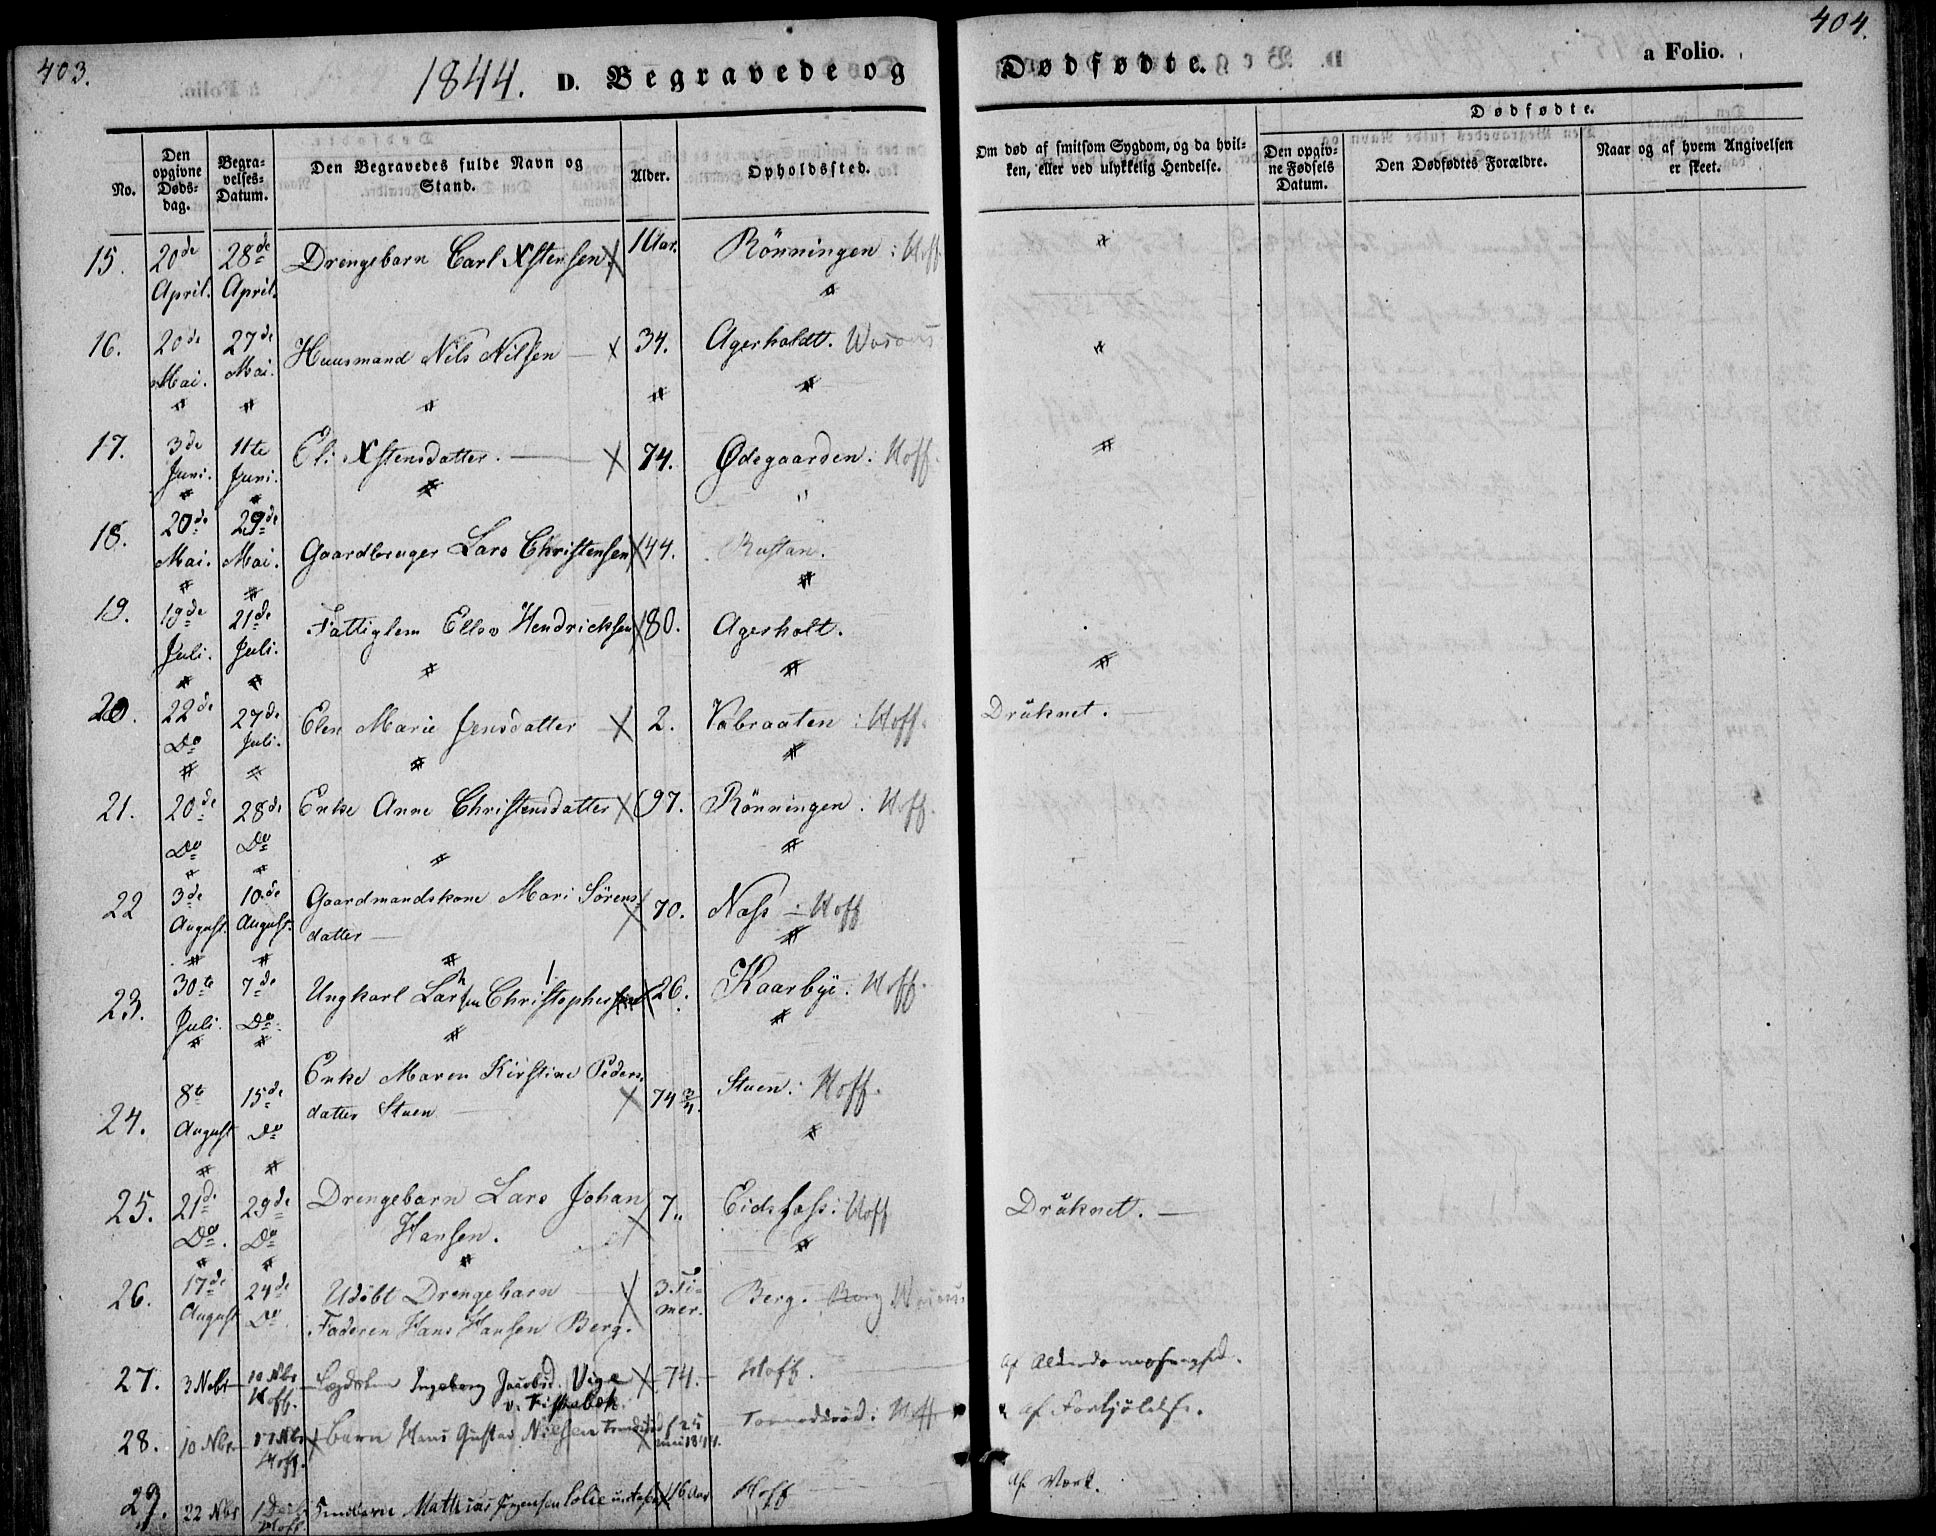 403.
1844. D. Begravede og
Dødfødte.
a Folio.
404.
No.
Den opgivne Døds-dag.
Begra-velses-Datum.
Den Begravedes fulde Navn og Stand.
Alder.
Opholdssted.
Om død af smitsom Sygdom, og da hvil-ken, eller ved ulykkelig Hendelse.
Dødfødte.
Den opgiv-ne Fødsels Datum.
Den Dødfødtes Forældre.
Naar og af hvem Angivelsen er skeet.
15. 20de April. 28de April. Drengebarn Carl Xstensen X 1 Aar. Rönningen: Hoff. "
16. 20de Mai. 27de Mai. Huusmand Nils Nilsen — X 34. Agerholdt. "
17. 3de Juni. 11te Juni. Eli Xstensdatter. — X 74. Ødegaarden: Hoff. "
18. 20de Mai. 29de Mai. Gaardbruger Lars Christensen X 44. Rustan.
19. 19de Juli. 21de Juli. Fattiglem Ellev Hendricksen X 80. Agerholt. "
20. 22de Do 27de Juli. Elen Marie Jensdatter X 2. Vabraaten: Hoff. Drüknet. —
21. 20de Do 28de Do Enke Anne Christensdatter X 97. Rönningen: Hoff.
22 3de August. 10de August. Gaardmandskone Mari Sörens-
datter — X 70. Næss: Hoff
23. 30te Juli. 7de Do Ungkarl Larsen Christopher X 26. Kaarbye: Hoff.
24. 8te August 15de Do Enke Maren Kirstine Peders-
datter Stuen — X 74 3/4. Stuen: Hoff.
25. 21de Do. 29de Do Drengebarn Lars Johan
Hansen. X 7. Eidsfoss: Hoff Drüknet. —
26. 17de August 24de Do Udöbt Drengebarn X 3 Ti-
mer. Berg.
Faderen Hans Hansen Berg.
27. 3 Nobr 10 Nbr Hoff. Ingeborg Jacobsd. X 74. Hoff.
28. 10 Nbr 17 Nbr Hoff. Barn Hans Gustav Nielsen Hoff af Forkjölelse.
29. 22 Nbr Hoff. Mathias Jörgensen X 16 Aar Hoff af Værk.